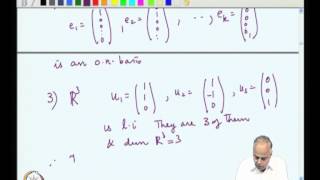 e₁ = (1 0 ⋮ 0), e₂ = (0 1 ⋮ 0), ..., e_k = (0 0 0 ⋮ 1)
is an o.n. basis
3) R³ u₁ = (1 1 1), u₂ = (1 -1 0), u₃ = (0 0 1)
is l.i They are 3 of them
& dim R³ = 3
∴